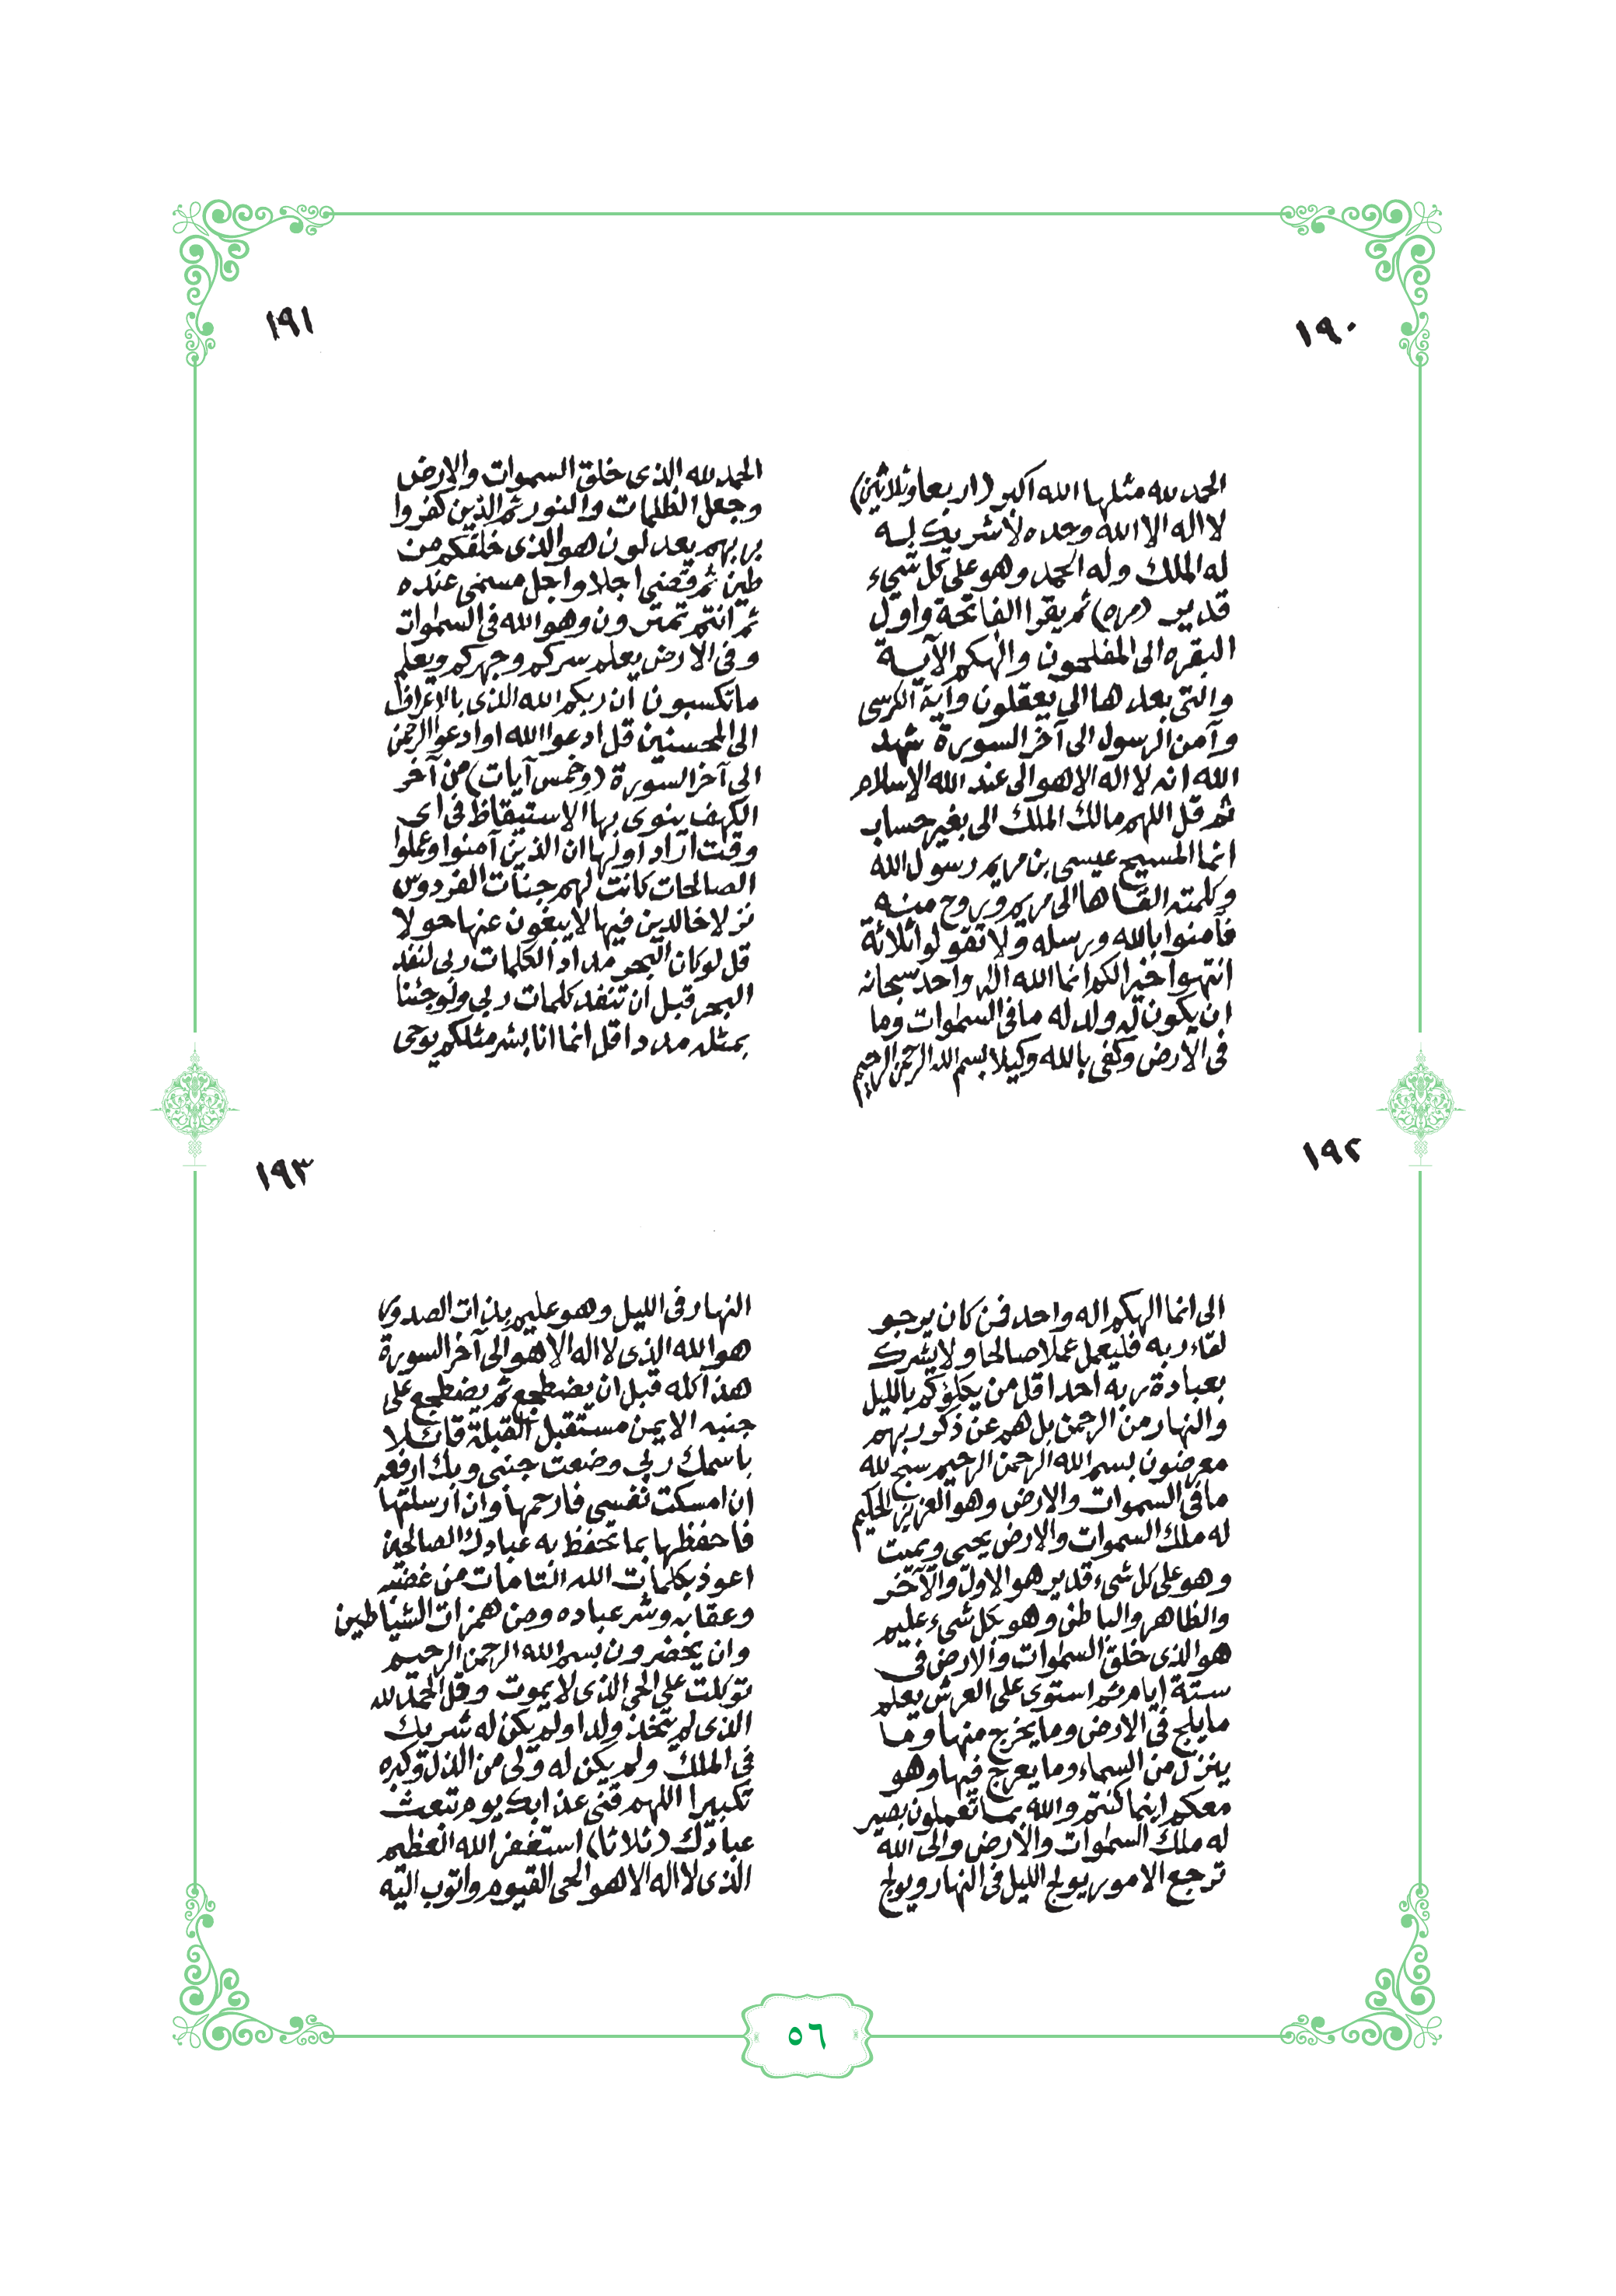 ١٩٠
الحمد لله مثلها الله اكبر (اربعا وثلاثين)
لا اله الا الله وحده لا شريك له
له الملك وله الحمد وهو على كل شيء
قدير (مره) ثم يقرا الفاتحة واول
البقره الى المفلحون والهكم الآية
والتى بعدها الى يعقلون وآية الكرسى
وآمن الرسول الى آخر السورة شهد
الله انه لا اله الا هو الى عند الله الإسلام
ثم قل اللهم مالك الملك الى بغير حساب
انما المسيح عيسى بن مريم رسول الله
وكلمته القاها الى مريم وروح منه
فآمنوا بالله ورسله ولا تقولوا ثلاثة
انتهوا خيرا لكم انما الله اله واحد سبحانه
ان يكون له ولد له ما فى السموات وما
فى الارض وكفى بالله وكيلا بسم الله الرحمن الرحيم
١٩١
الحمد لله الذى خلق السموات والارض
وجعل الظلمات والنور ثم الذين كفروا
بربهم يعدلون هو الذى خلقكم من
طين ثم قضى اجلا واجل مسمى عنده
ثم انتم تمترون وهو الله فى السموات
وفى الارض يعلم سركم وجهركم ويعلم
ما تكسبون ان ربكم الله الذى بالاعراف
الى المحسنين قل ادعوا الله او ادعوا الرحمن
الى آخر السورة (وخمس آيات) من آخر
الكهف ينوى بها الاستيقاظ فى اى
وقت اراد اولها ان الذين آمنوا وعملوا
الصالحات كانت لهم جنات الفردوس
نزلا خالدين فيها لا يبغون عنها حولا
قل لو كان البحر مدادا لكلمات ربى لنفد
البحر قبل ان تنفد كلمات ربى ولو جئنا
بمثله مددا قل انما انا بشر مثلكم يوحى
١٩٢
الى انما الهكم اله واحد فمن كان يرجو
لقاء ربه فليعمل عملا صالحا ولا يشرك
بعبادة ربه احدا قل من يكلؤكم بالليل
والنهار من الرحمن بل هم عن ذكر ربهم
معرضون بسم الله الرحمن الرحيم سبح لله
ما فى السموات والارض وهو العزيز الحكيم
له ملك السموات والارض يحيى ويميت
وهو على كل شىء قدير هو الاول والآخر
والظاهر والباطن وهو بكل شىء عليم
هو الذى خلق السموات والارض فى
ستة ايام ثم استوى على العرش يعلم
ما يلج فى الارض وما يخرج منها وما
ينزل من السماء وما يعرج فيها وهو
معكم اينما كنتم والله بما تعملون بصير
له ملك السموات والارض والى الله
ترجع الامور يولج الليل فى النهار ويولج
١٩٣
النهار فى الليل وهو عليم بذات الصدور
هو الله الذى لا اله الا هو الى آخر السورة
هذا كله قبل ان يضطجع ثم يضطجع على
جنبه الايمن مستقبل القبلة قائلا
باسمك ربى وضعت جنبى وبك ارفعه
ان امسكت نفسى فارحمها وان ارسلتها
فاحفظها بما تحفظ به عبادك الصالحين
اعوذ بكلمات الله التامات من غضبه
وعقابه وشر عباده ومن همزات الشياطين
وان يحضرون بسم الله الرحمن الرحيم
توكلت على الحى الذى لا يموت وقل الحمد لله
الذى لم يتخذ ولدا ولم يكن له شريك
فى الملك ولم يكن له ولى من الذل وكبره
تكبيرا اللهم قنى عذابك يوم تبعث
عبادك (ثلاثا) استغفر الله العظيم
الذى لا اله الا هو الحى القيوم واتوب اليه
٥٦